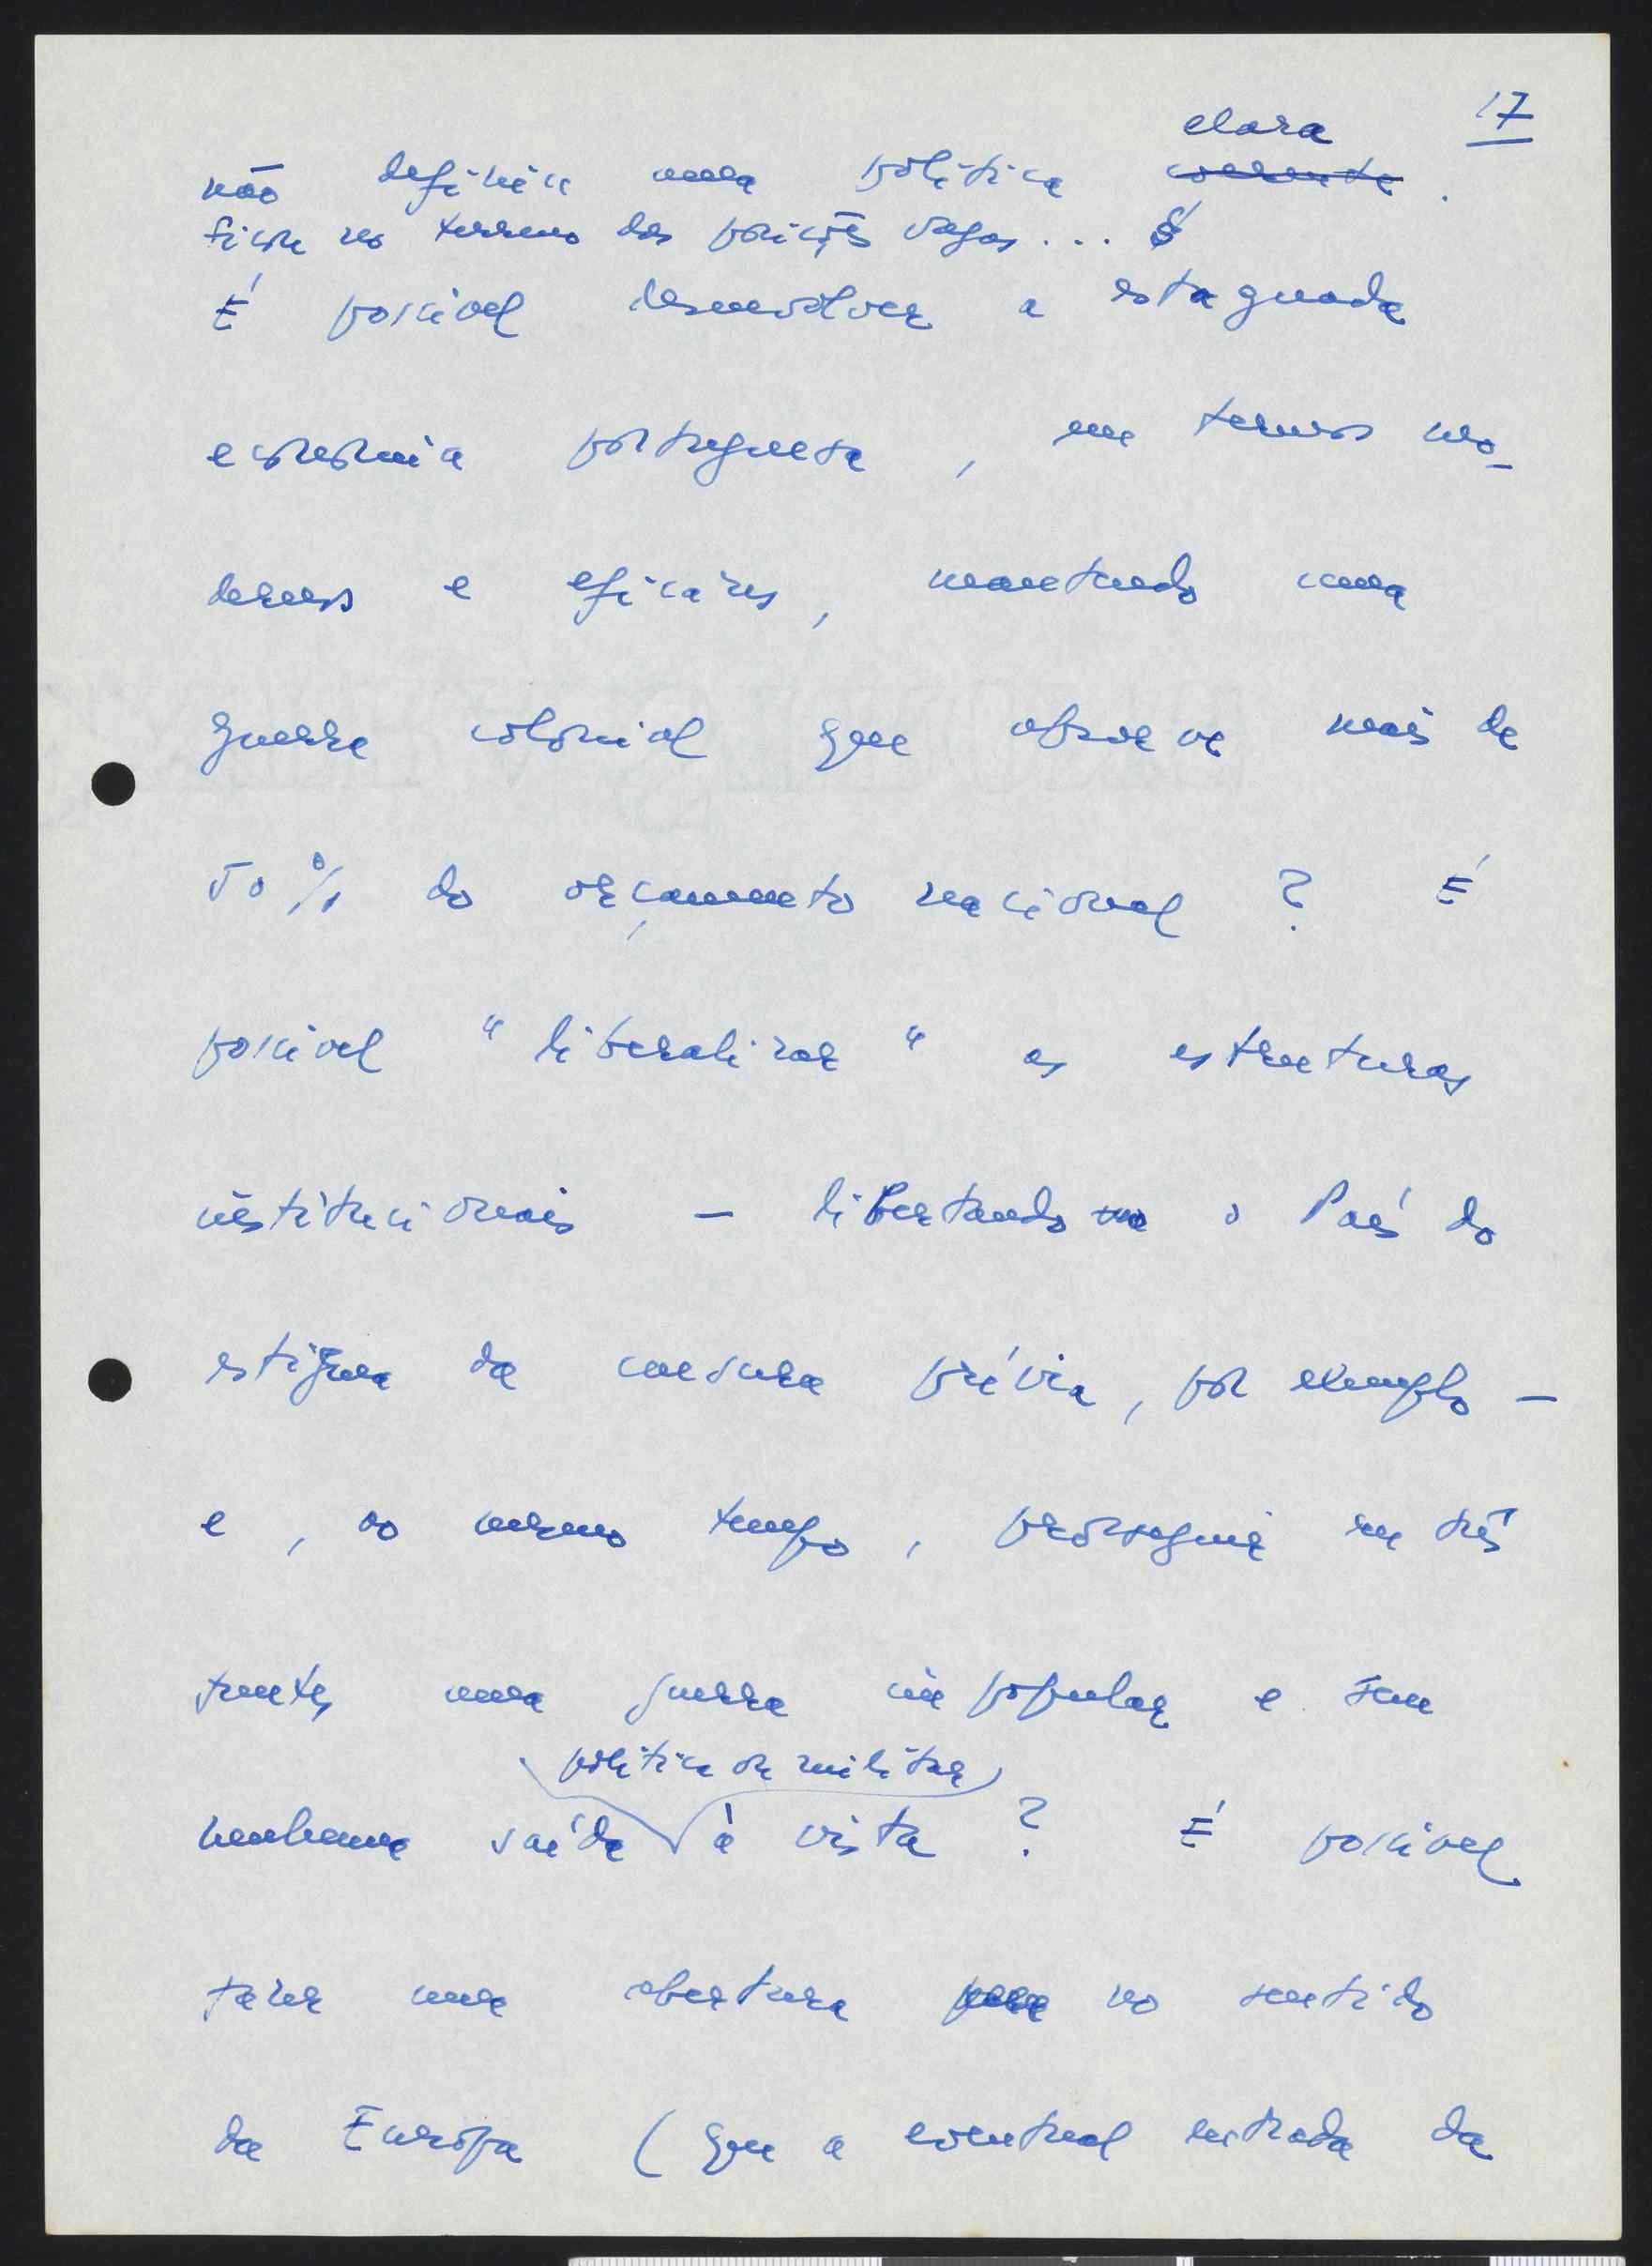 17
clara
não definir uma política coerente.
ficar no terreno das posições vagas...
É possível desenvolver a estagnada
economia portuguesa, em termos mo-
dernos e eficazes, mantendo uma
guerra colonial que absorve mais de
50% do orçamento nacional? É
possível "liberalizar" as estruturas
institucionais — libertando o País do
estigma da censura prévia, por exemplo —
e, ao mesmo tempo, prosseguir em três
frentes uma guerra impopular e sem
política ou militar
nenhuma saída à vista? É possível
fazer uma abertura para no sentido
da Europa (que a eventual entrada da